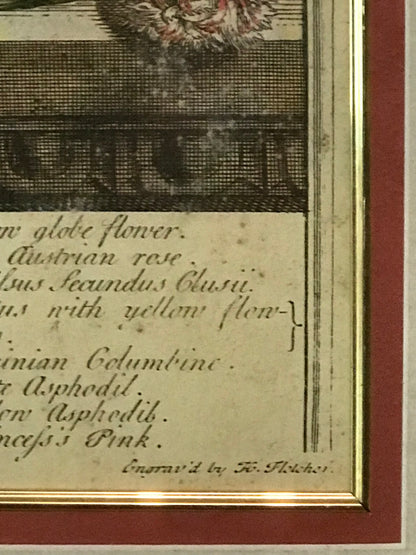 w globe flower.
Austrian rose.
lsus Secundus Clusii.
us with yellow flow-
.
inian Columbine.
te Asphodil.
low Asphodil.
incess's Pink.
Engrav'd by H. Fletcher.